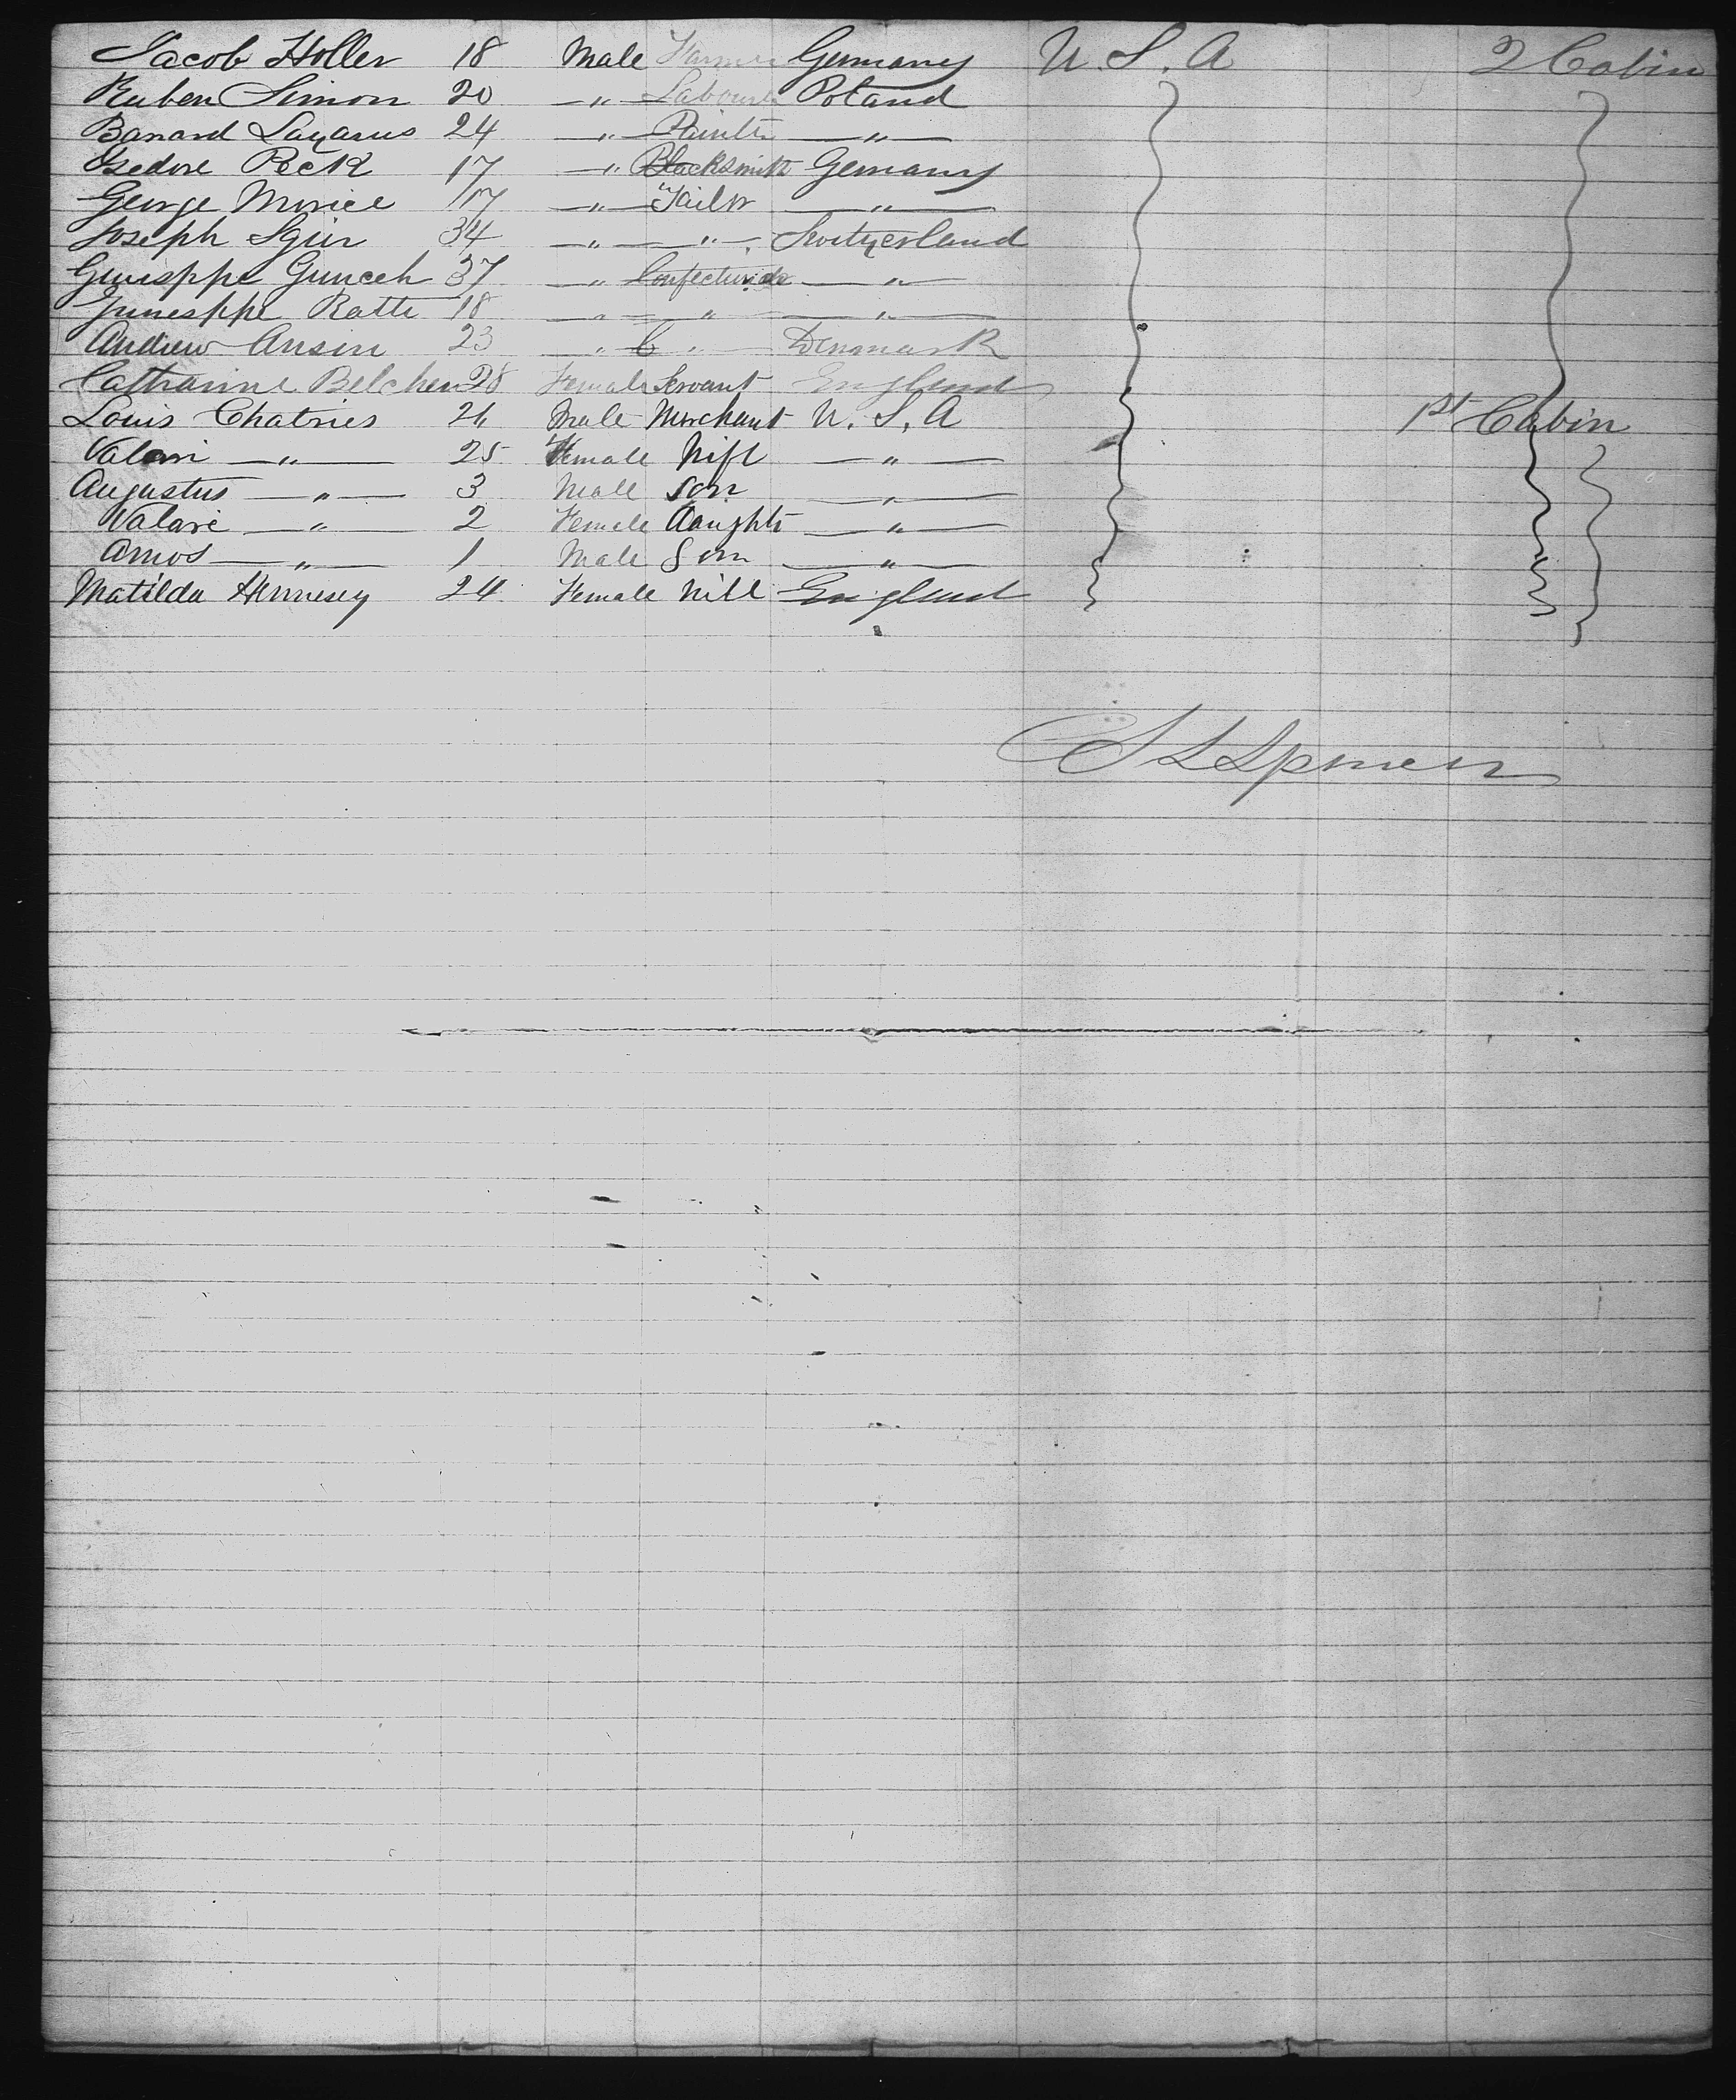 Jacob Holler 18 Male Farmer Germany U. S. A 2 Cabin
Ruben Simon 20 —"— Labourer Poland
Barnard Lazarus 24 —"— Painter —"—
Isedore Peck 17 —"— Blacksmith Germany
George Morice 17 —"— Tailor —"—
Joseph 34 —"— —"— Switzerland
Giuseppe 37 —"— —"—
Ratti 18 —"— —"— —"—
Andrew Ansin 23 —"— —"— Denmark
Catharine Belcher 28 Female Servant England
Louis Chatries 26 Male Merchant U. S. A 1st Cabin
—"— 25 Female Wife —"—
Augustus —"— 3 Male Son —"—
Valarie —"— 2 Female Daughtr —"—
Amos —"— 1 Male Son —"—
Matilda Hennesey 24 Female England